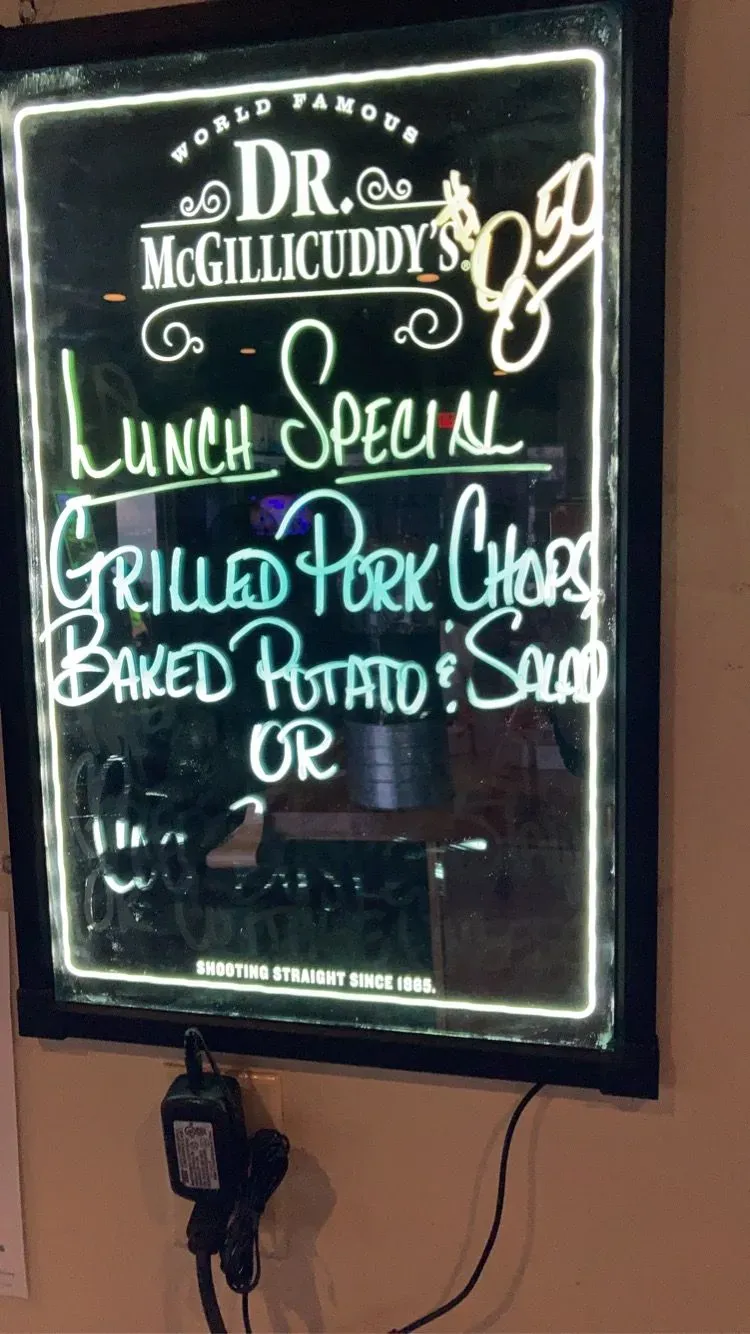 WORLD FAMOUS
DR.
McGILLICUDDY'S®
$8.50
LUNCH SPECIAL
GRILLED PORK CHOPS
BAKED POTATO & SALAD
OR
SHOOTING STRAIGHT SINCE 1865.